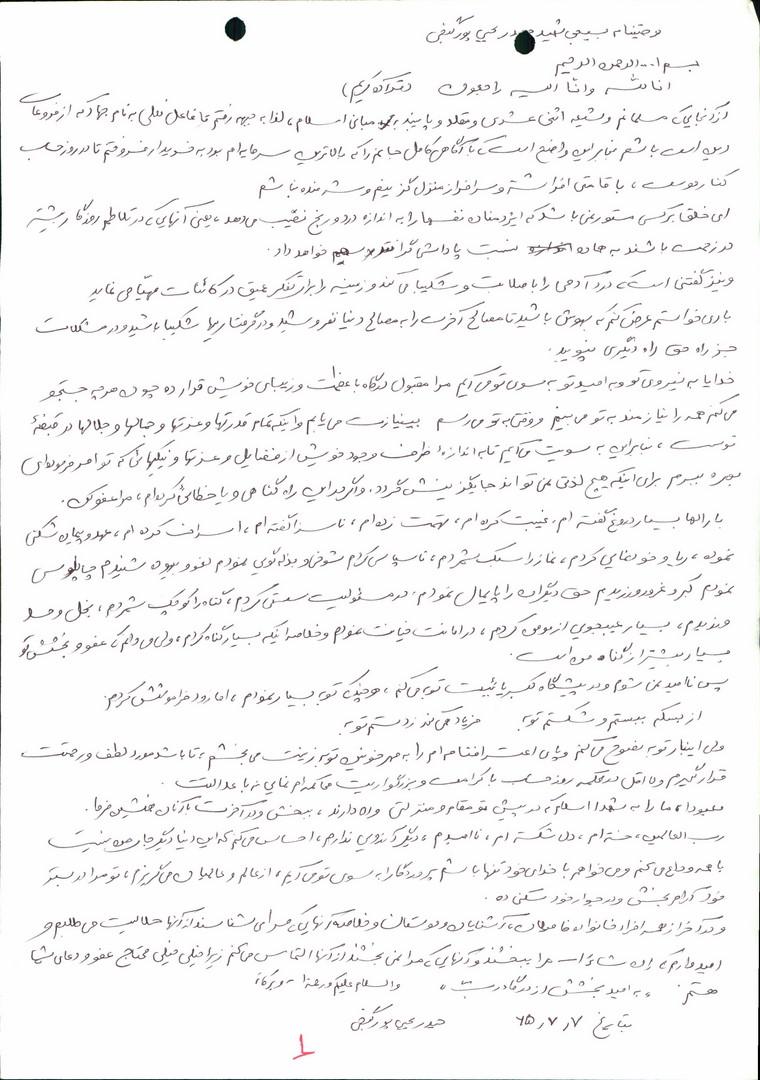 وصیتنامه بسیجی شهید حیدر یحیی پور گنجی
بسم ا... الرحمن الرحیم
انا لله و انا الیه راجعون (قرآن کریم)
از آنجایی که مسلمانم و شیعه اثنی عشری و مقلد و پایبند به مبانی اسلام، لذا به جبهه رفتم تا فاعل فعلی به نام جهاد که از فروعات
دین است باشم بنابراین واضح است که با آگاهی کامل جانم را که بالاترین سرمایه ام بود به خریدار فروختم تا در روز حساب
کنار دوست، با قامتی افراشته و سرافراز منزل گزینم و شرمنده نباشم
ای خلق بر کسی مستور نمی باشد که ایزد منان نفسها را به اندازه درد و رنج نصیب می دهد، یعنی آنهایی که در تلاطم روزگار بیشتر
در زحمت باشند به همان نسبت پاداشی گرانقدر خواهد داد.
و نیز گفتنی است که درد آدمی را با صلابت و شکیبا می کند و زمینه را برای تفکر عمیق در کائنات مهیا می نماید
باری خواستم عرض کنم که بهوش باشید تا مصالح آخرت را به مصالح دنیا نفروشید و در گرفتاریها شکیبا باشید و در مشکلات
جز راه حق راه دیگری نپوید.
خدایا به نیروی تو و به امید تو به سوی تو می آیم مرا مقبول درگاه با عظمت و زیبای خویش قرار ده چون هر چه جستجو
می کنم همه را نیازمند به تو می بینم و وقتی به تو می رسم بی نیازت می یابم و اینکه تمام قدرتها و عزتها و جمالها و جلالها در قبضهٔ
توست، بنابراین به سویت می آیم تا به اندازهٔ ظرف وجود خویش از فضایل و عزتها و نیکیهائی که تو امر فرموده ای
بهره ببرم برای اینکه هیچ لذتی نمی تواند جایگزینش گردد، و اگر در این راه گناهی و یا خطائی کرده ام، مرا عفو کن.
بارالها بسیار دروغ گفته ام، غیبت کرده ام، تهمت زده ام، ناسزا گفته ام، اسراف کرده ام، عهد و پیمان شکنی
نموده، ریا و خودنمایی کردم، نماز را سبک شمردم، ناسپاسی کردم شوخی و بذله گویی نمودم لغو و بیهوده شنیدم چاپلوسی
نمودم کبر و غرور ورزیدم حق دیگران را پایمال نمودم. در مسئولیت سستی کردم، گناه را کوچک شمردم، بخل و حسد
ورزیدم، بسیار عیبجویی از مومن کردم، در امانت خیانت نمودم و خلاصه اینکه بسیار گناه کردم، ولی می دانم که عفو و بخشش تو
بسیار بیشتر از گناه من است.
پس ناامید نمی شوم و در پیشگاه کبریائیت توبه می کنم، هر چند که توبه بسیار نمودم، اما زود فراموشش کردم.
از بسکه ببستم و شکستم توبه فریاد می کند ز دستم توبه
ولی اینبار توبه نصوح می کنم و پای اعتراف نامه ام را به مهر خونین توبه زینت می بخشم، تا باشد مورد لطف و رحمتت
قرار گیرم و لااقل در محکمه روز حساب با کرامت و بزرگواریت محاکمه ام نمایی نه با عدالتت.
معبودا، ما را به شهدا اسلام که در پیش تو مقام و منزلتی والا دارند، ببخش و در آخرت با آنان همنشین فرما.
رب العالمین، خسته ام، دل شکسته ام، ناامیدم، دیگر آرزویی ندارم، احساس می کنم که این دنیا دیگر جای من نیست
با همه وداع می کنم و می خواهم با خدای خود تنها باشم پروردگارا به سوی تو می آیم، از عالم و عالمیان می گریزم، تو مرا در بستر
خود آرام بخش و در جوار خود سکنی ده.
و در آخر از همه افراد خانواده فامیلان، آشنایان و دوستان و خلاصه آنهایی که مرا می شناسند از آنها حلالیت می طلبم و
امیدوارم که ان شاء ا... مرا ببخشند و آنهایی که مرا نمی بخشند از آنها التماس می کنم زیرا خیلی خیلی محتاج عفو و دعای شما
هستم. «به امید بخشش از درگاه ربت» والسلام علیکم و رحمة ا... و برکاته
بتاریخ ۶۵/۷/۷ حیدر یحیی پور گنجی
1